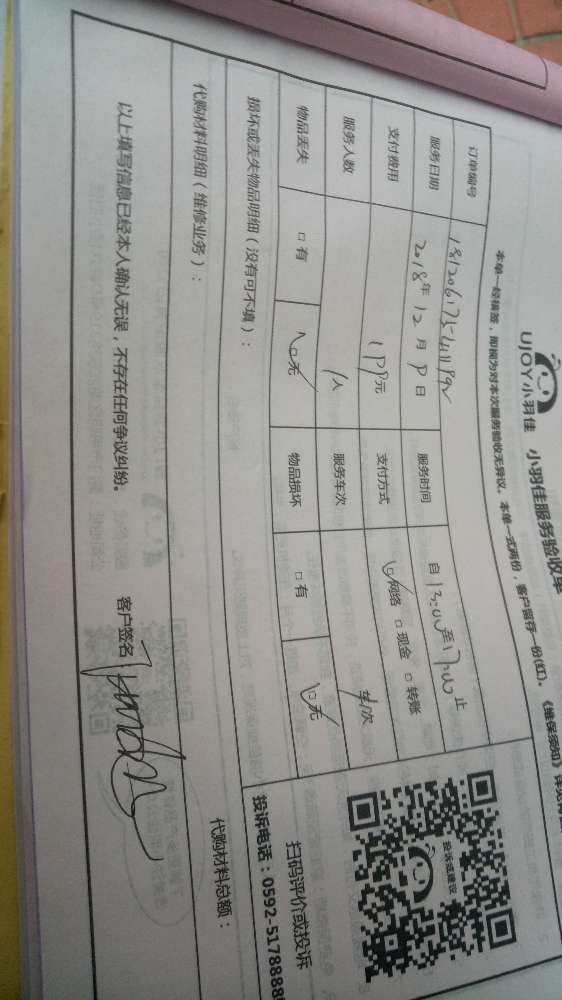 UJOY小羽佳 小羽佳服务验收单
本单一经核签，即视为对本次服务验收无异议。本单一式两份，客户留存一份(红)。
订单编号
服务日期 2018年12月 日 服务时间 自13:00至17:00止
支付费用 元 支付方式 网络 □现金 □转账
服务人数 1人 服务车次 车/次
物品丢失 □有 □无 物品损坏 □有 □无
损坏或丢失物品明细（没有可不填）：
代购材料明细（维修业务）： 代购材料总额：
以上填写信息已经本人确认无误，不存在任何争议纠纷。 客户签名：
投诉或建议
扫码评价或投诉
投诉电话：0592-5178888